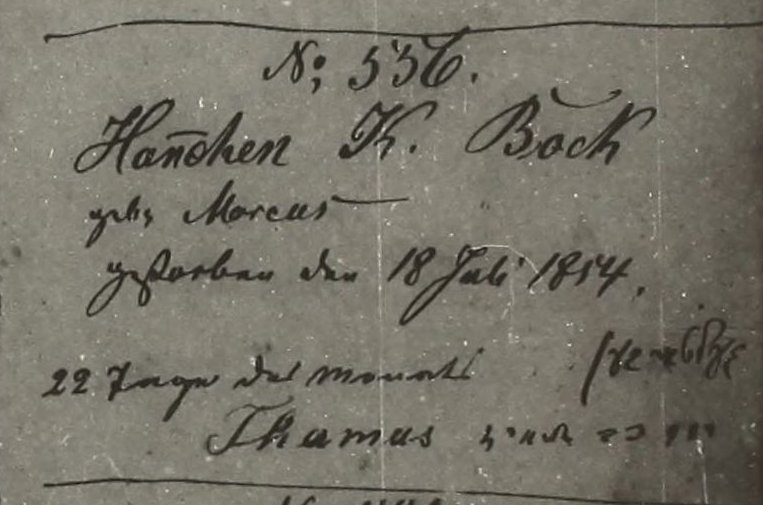 No; 556.
Han̄chen K. Bock
geb; Marcus
gestorben den 18 Juli 1854.
22 Tage des Monats
Thamus